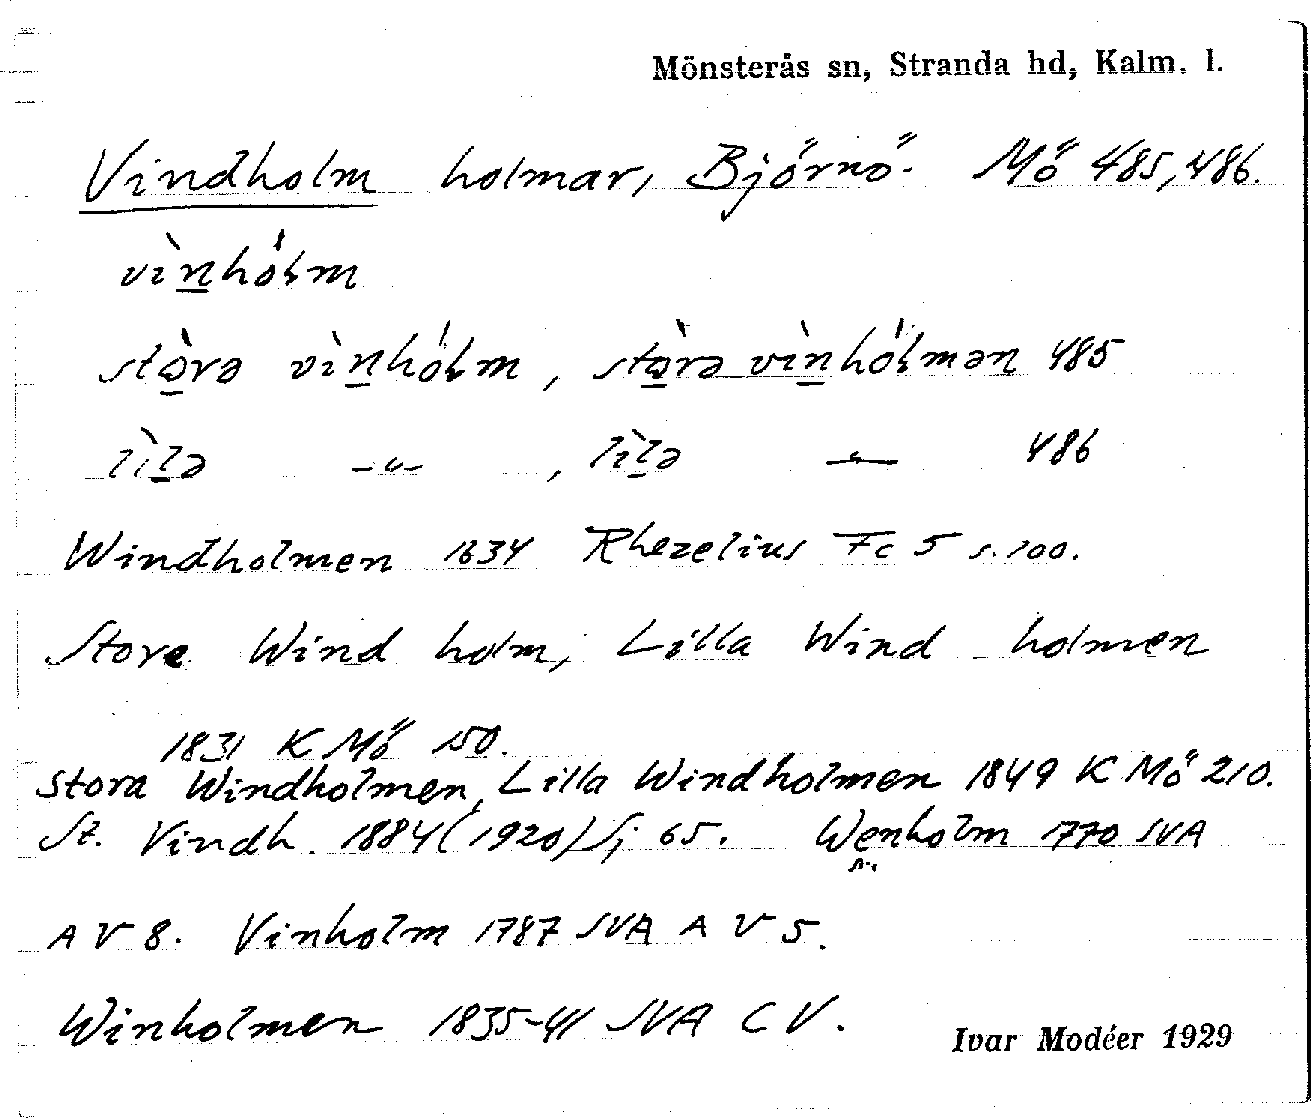 Mönsterås sn, Stranda hd, Kalm. l.
Vindholm holmar, Björnö. Mö 485, 486.
vìnhólm
stòrə vìnhólm, stòrə vìnhólmən 485
lìlə –"–, lìlə –"– 486
Windholmen 1634 Rhezelius Fc 5 s. 100.
Store Wind holm, Lilla Wind holmen
1831 K Mö 150.
Stora Windholmen, Lilla Windholmen 1849 K Mö 210.
St. Vindh. 1884 (1920) Sj 65. Wenholm 1770 SVA
A V 8. Vinholm 1787 SVA A V 5.
Winholmen 1835-41 SVA C V.
Ivar Modéer 1929